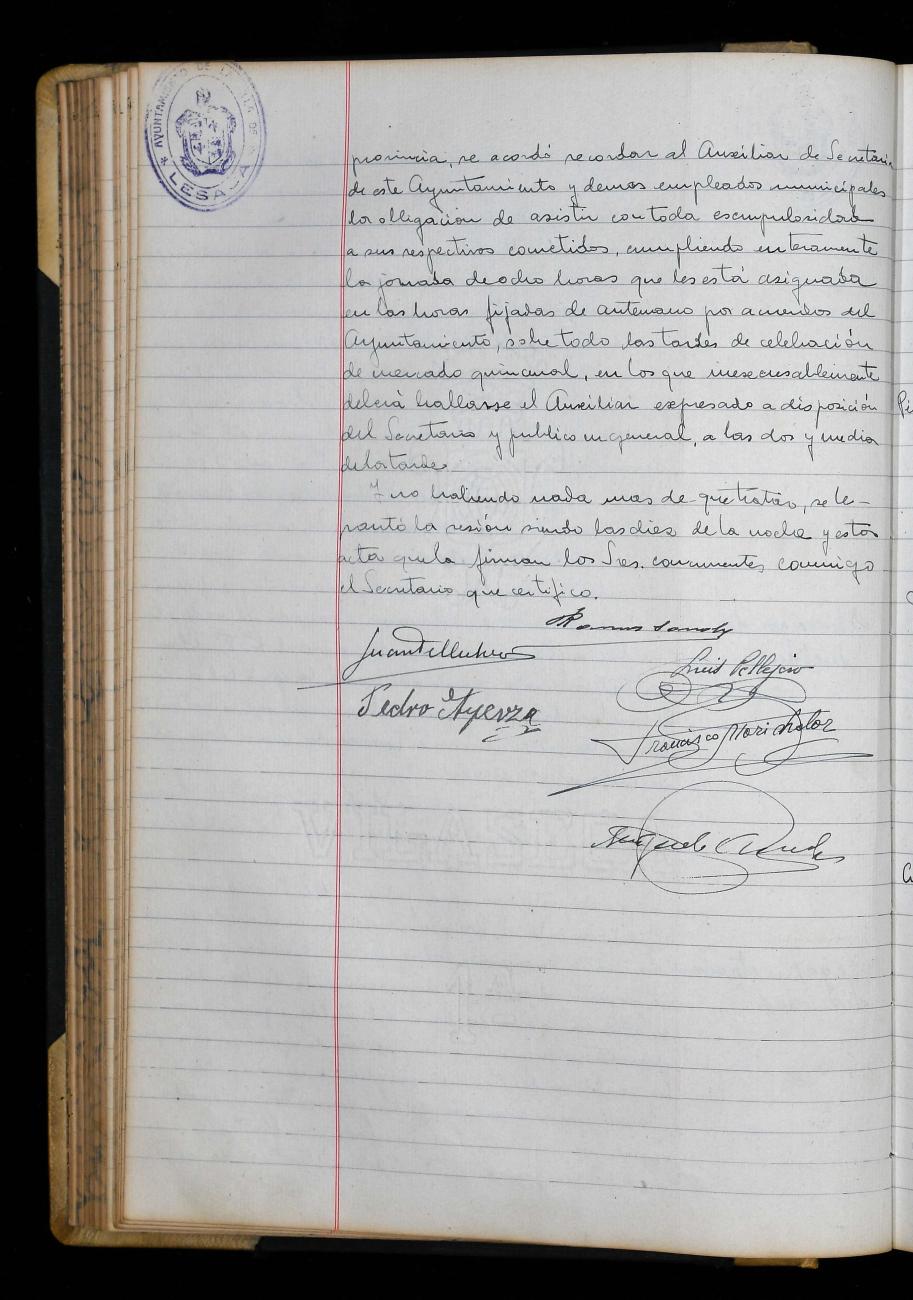 AYUNTAMIENTO DE LA VILLA DE
LESACA
provincia, se acordó recordar al Auxiliar de Secretaria
de este Ayuntamiento y demas empleados municipales
la obligacion de asistir con toda escrupulosidad
a sus respectivos cometidos, cumpliendo enteramente
la jornada de ocho horas que les está asignada
en las horas fijadas de antemano por acuerdos del
Ayuntamiento, sobre todo las tardes de celebración
de mercado quincenal, en los que inexcusablemente
deberá hallarse el Auxiliar expresado a disposición
del Secretario y publico en general, a las dos y media
de la tarde.
Y no habiendo nada mas de que tratar, se le-
vantó la sesión siendo las diez de la noche y esta
acta que la firman los Sres. concurrentes conmigo
el Secretario que certifico.
Ramon
Juan Tellechea
Luis Pellejero
Pedro Ayerza
Francisco Marichalar